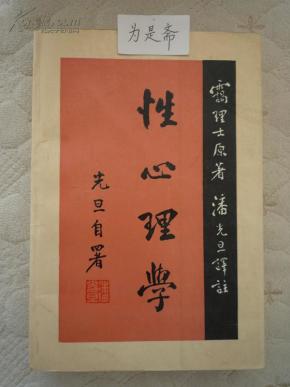 为是斋
霭理士原著 潘光旦譯註
性心理學
光旦自署